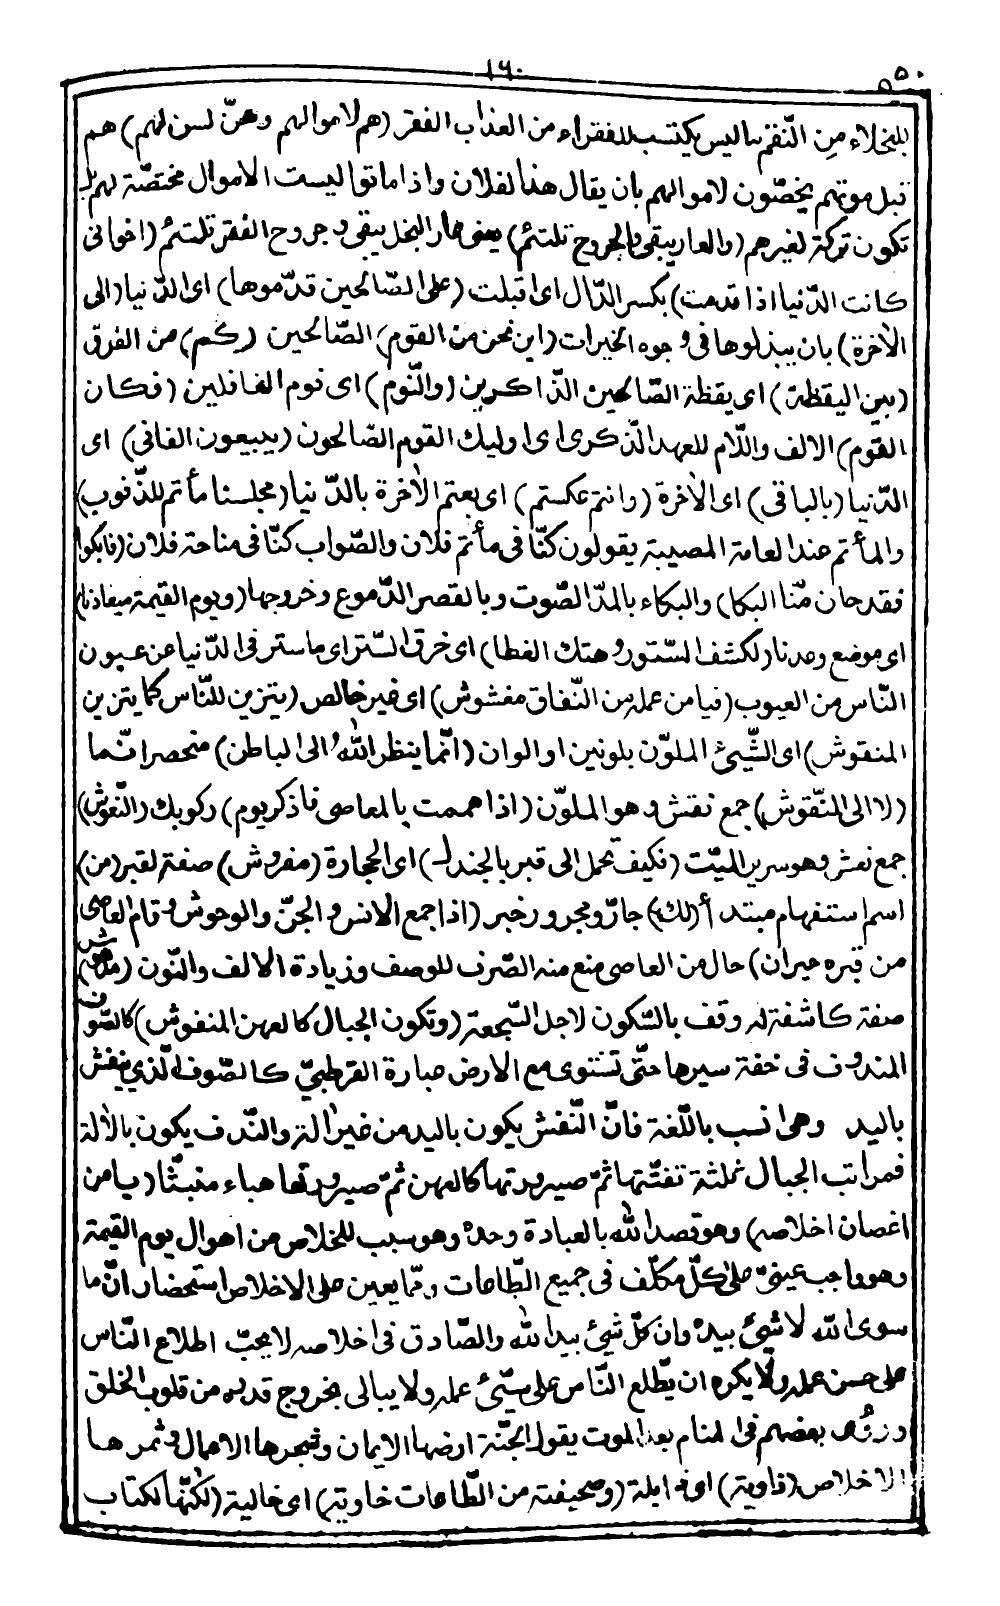 ١٦٠
٥٥٠
للبخلاء من النّقم ما ليس يكتسب للفقراء من العذاب الفقر (هم لاموالهم وهنّ لسن لهم) هم
قبل موتهم يخصّون لاموالهم بان يقال هذا لفلان واذا ماتوا ليست الاموال مختصّة لهم بل
تكون تركة لغيرهم (والعار يبقى والجروح تلتئم) يعنى عار البخل يبقى وجروح الفقر تلتئم (اخوانى
كانت الدّنيا اذا قدمت) بكسر الدّال اى اقبلت (على الصّالحين قدّموها) اى الدّنيا (الى
الاٰخرة) بان يبذلوها فى وجوه الخيرات (اين نحن من القوم) الصّالحين (كم) من الفرق
(بين اليقظة) اى يقظة الصّالحين الذّاكرين (والنّوم) اى نوم الغافلين (فكان
القوم) الالف واللّام للعهد الذّكرى اى اوليك القوم الصّالحون (يبيعون الفانى) اى
الدّنيا (بالباقى) اى الاٰخرة (وانتم عكستم) اى بعتم الاٰخرة بالدّنيا (مجلسنا مأتم للذّنوب)
والمأتم عند العامة المصيبة يقولون كنّا فى مأتم فلان والصّواب كنّا فى مناحة فلان (فابكوا
فقد حان منّا البكا) والبكاء بالمدّ الصّوت وبالقصر الدّموع وخروجها (ويوم القيمة ميعادنا)
اى موضع وعدنا (لكشف السّتور وهتك الغطا) اى خرق السّتر اى ما ستر فى الدّنيا عن عيون
النّاس من العيوب (فيا من عمله من النّفاق مغشوش) اى غير خالص (يتزين للنّاس كما يتزين
المنقوش) اى الشّيئ الملوّن بلونين او الوان (انّما ينظر اللّٰه الى الباطن) منحصر انّما
(لا الى النّقوش) جمع نقش وهو الملوّن (اذا هممت بالمعاصى فاذكر يوم) ركوبك (النّعوش)
جمع نعش وهو سرير الميّت (وكيف تحمل الى قبر بالجندل) اى الحجارة (مفروش) صفة لقبر (من)
اسم استفهام مبتدأ (لك) جارّ ومجرور خبر (اذا جمع الانس والجنّ والوحوش وقام العاصى
من قبره حيران) حال من العاصى منع منه الصّرف للوصف وزيادة الالف والنّون (مدهوش)
صفة كاشفة له وقف بالسّكون لاجل السّجعة (وتكون الجبال كالعهن المنفوش) كالصّوف
المندوف فى خفة سيرها حتّى تستوى مع الارض عبارة القرطبىّ كالصّوف الّذى ينفش
باليد وهى انسب باللّغة فانّ النّفش يكون باليد من غير اٰلة والنّدف يكون بالاٰلة
فمراتب الجبال ثلثة تفتّتها ثمّ صيرورتها كالعهن ثمّ صيرورتها هباء منبثّا (يا من
اغصان اخلاصه) وهو قصد اللّٰه بالعبادة وحده وهو سبب للخلاص من اهوال يوم القيمة
وهو واجب عينىّ على كلّ مكلّف فى جميع الطّاعات وممّا يعين على الاخلاص استحضار انّ ما
سوى اللّٰه لا شيئ بيده وان كلّ شيئ بيد اللّٰه والصّادق فى اخلاصه لا يحبّ اطلاع النّاس
على حسن عمله ولا يكره ان يطّلع النّاس على سيّئ عمله ولا يبالى بخروج قدره من قلوب الخلق
ورؤى بعضهم فى المنام بعد الموت يقول الجنّة ارضها الايمان وشجرها الاعمال وثمرها
الاخلاص (ذاوية) اى ذابلة (وصحيفته من الطّاعات خاوية) اى خالية (لكنّها لكتاب